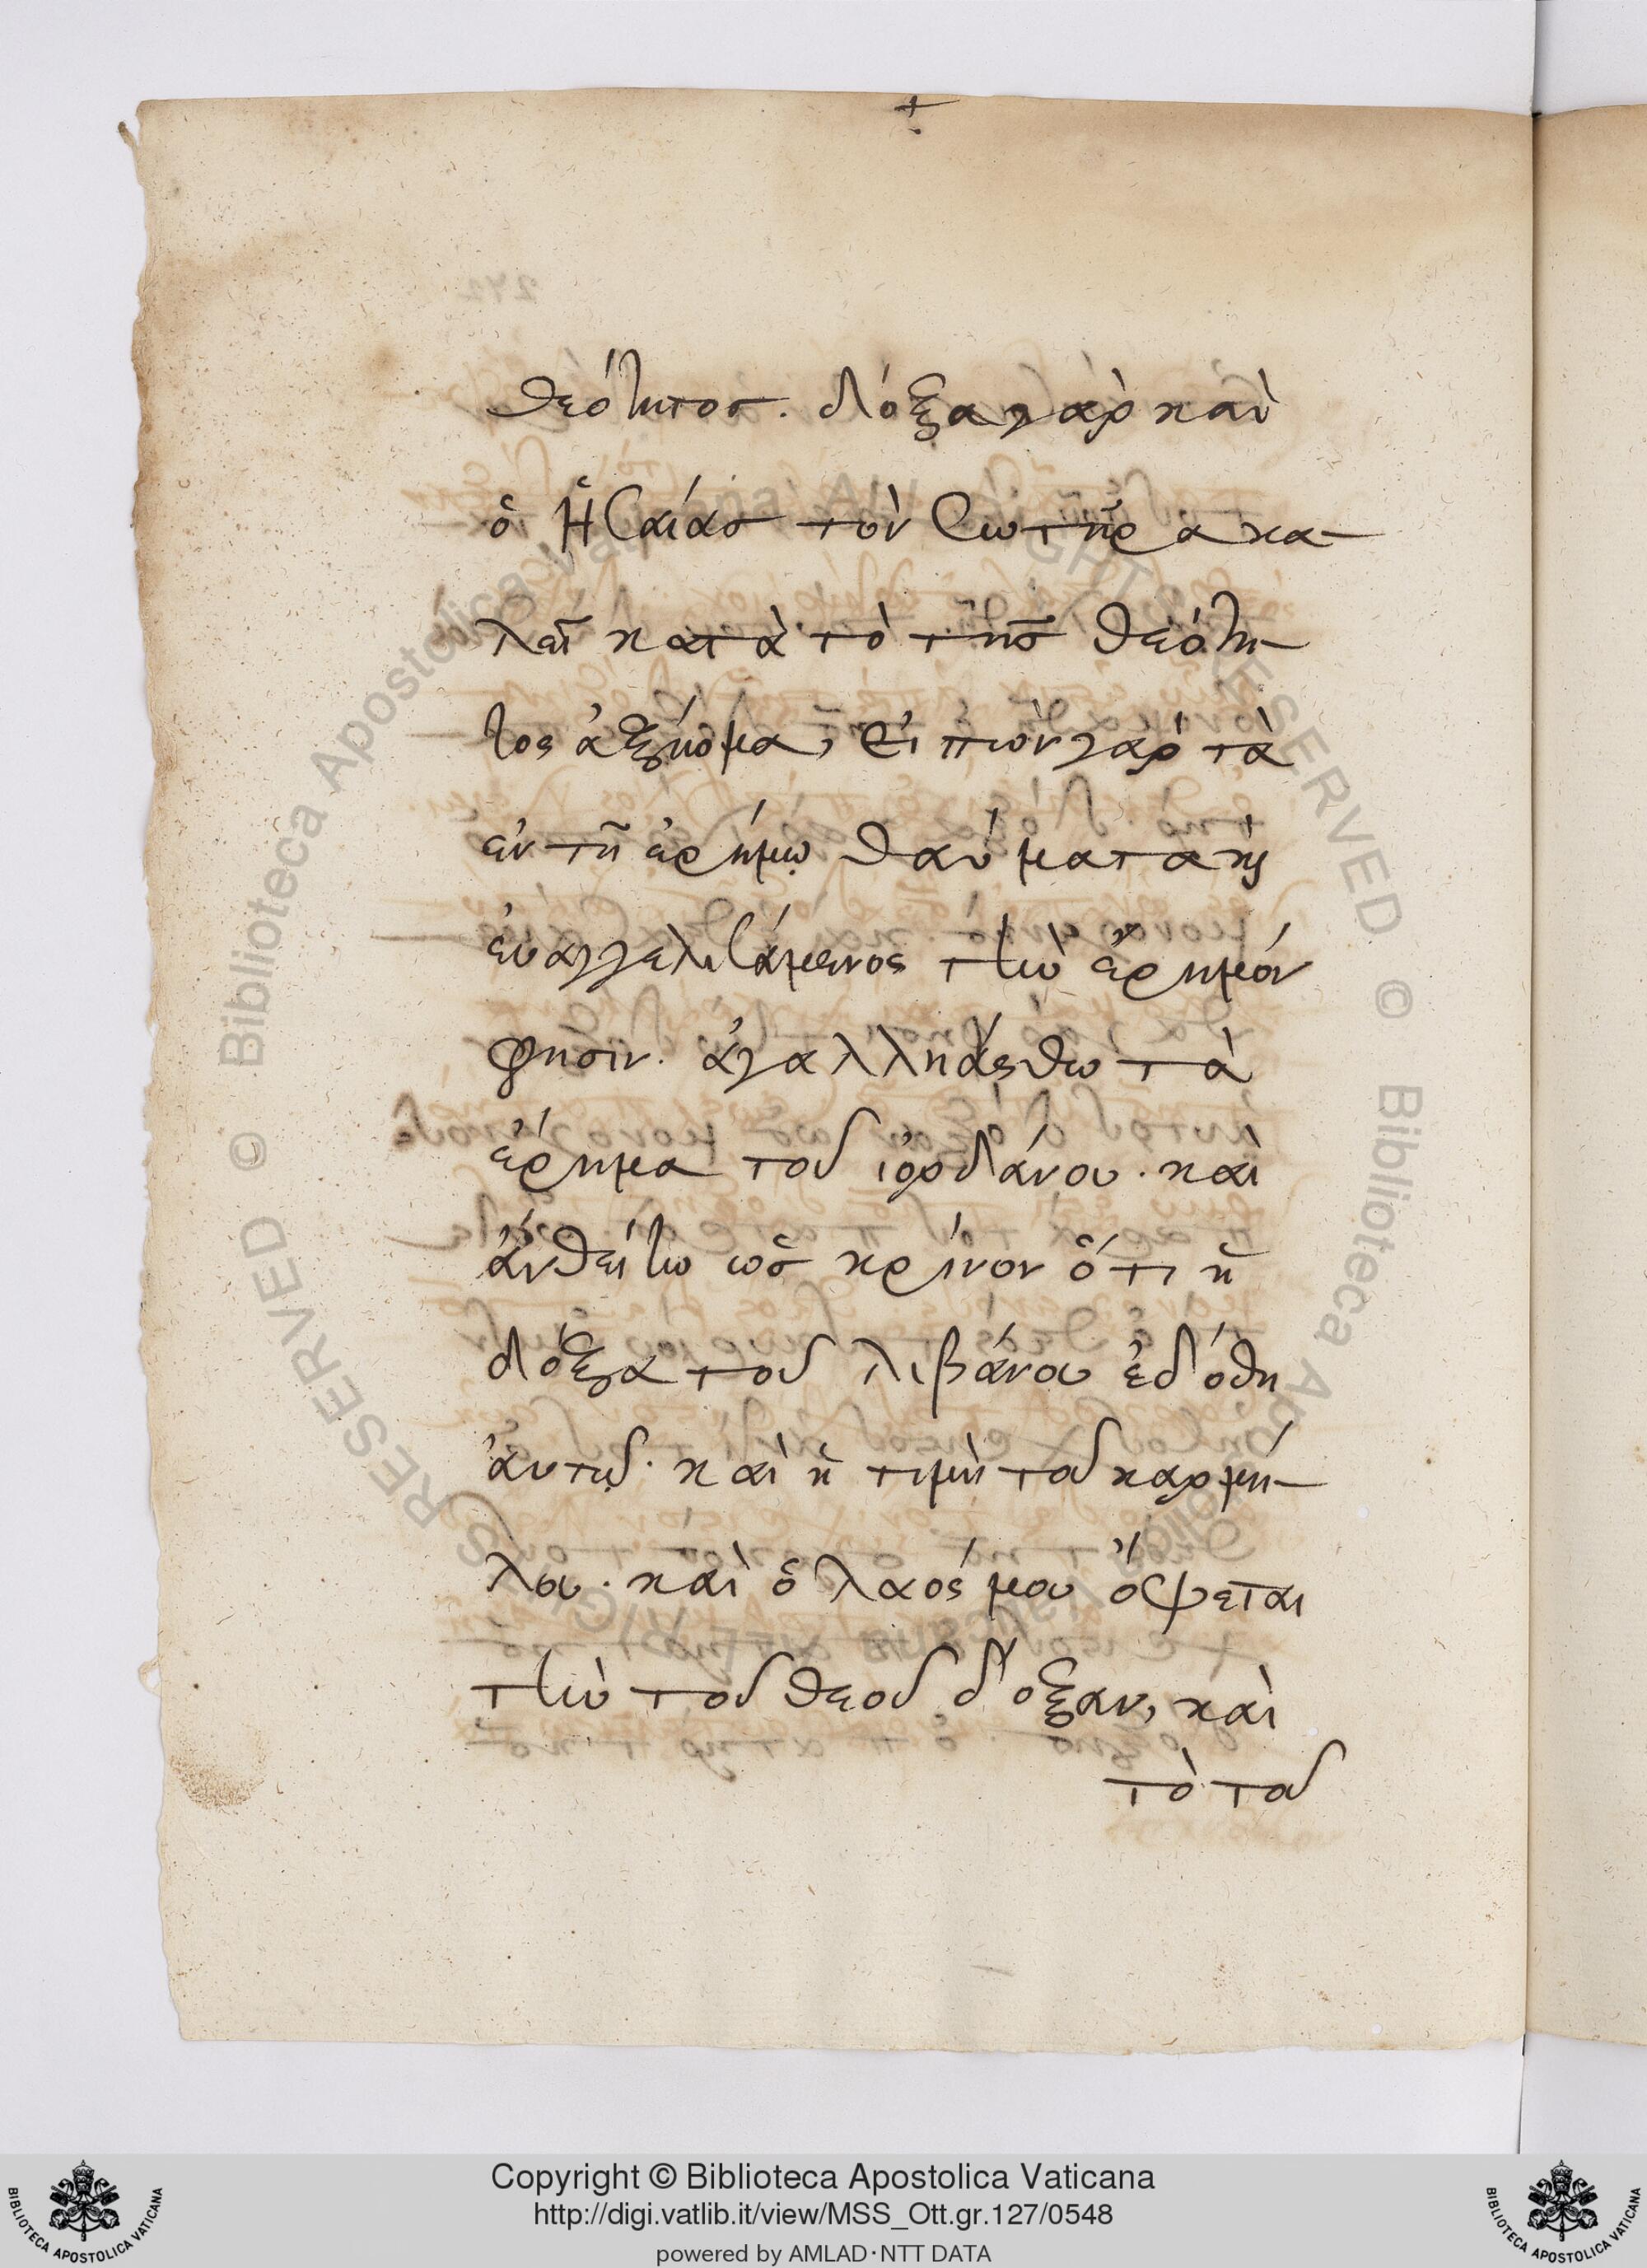 θεότητος. δόξα γὰρ καὶ
ὁ Ἡσαίας τὸν σωτῆρα κα-
λεῖ κατὰ τὸ τῆς θεότη-
τος ἀξήομα, εἰπὼν γὰρ τὰ
ἐν τῇ ἐρήμῳ θαύματα κ̀
ἐυαγγελισάμενος τὴν ἔρημόν
φησιν. ἀγαλλησάσθω τὰ
ἔρημα τοῦ ἰορδάνου. καὶ
ἀνθείτω ὡς κρίνον ὅτι ἡ
δόξα τοῦ λιβάνου ἐδόθη
ἀυτῷ. καὶ ἡ τιμὴ τοῦ καρμή-
λου. καὶ ὁ λαός μου ὄψεται
τὴν τοῦ θεοῦ δόξαν, καὶ
τὸ τοῦ
Copyright © Biblioteca Apostolica Vaticana
http://digi.vatlib.it/view/MSS_Ott.gr.127/0548
powered by AMLAD·NTT DATA
BIBLIOTECA APOSTOLICA VATICANA
BIBLIOTECA APOSTOLICA VATICANA